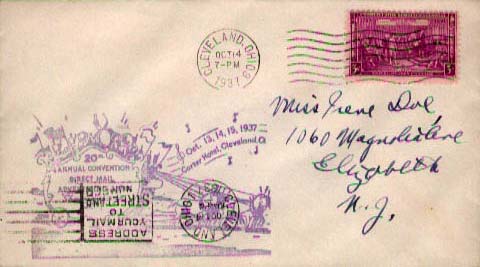 CLEVELAND, OHIO
OCT 14
7-PM
1937
3
Oct. 13, 14, 15, 1937
Carter Hotel, Cleveland, O.
20th
ANNUAL CONVENTION
DIRECT MAIL
ADDRESS
YOUR MAIL
TO
STREET AND
NUMBER
CLEVELAND, OHIO
OCT 14
Miss Irene Doé,
1060 Magnolia Ave
Elizabeth
N. J.